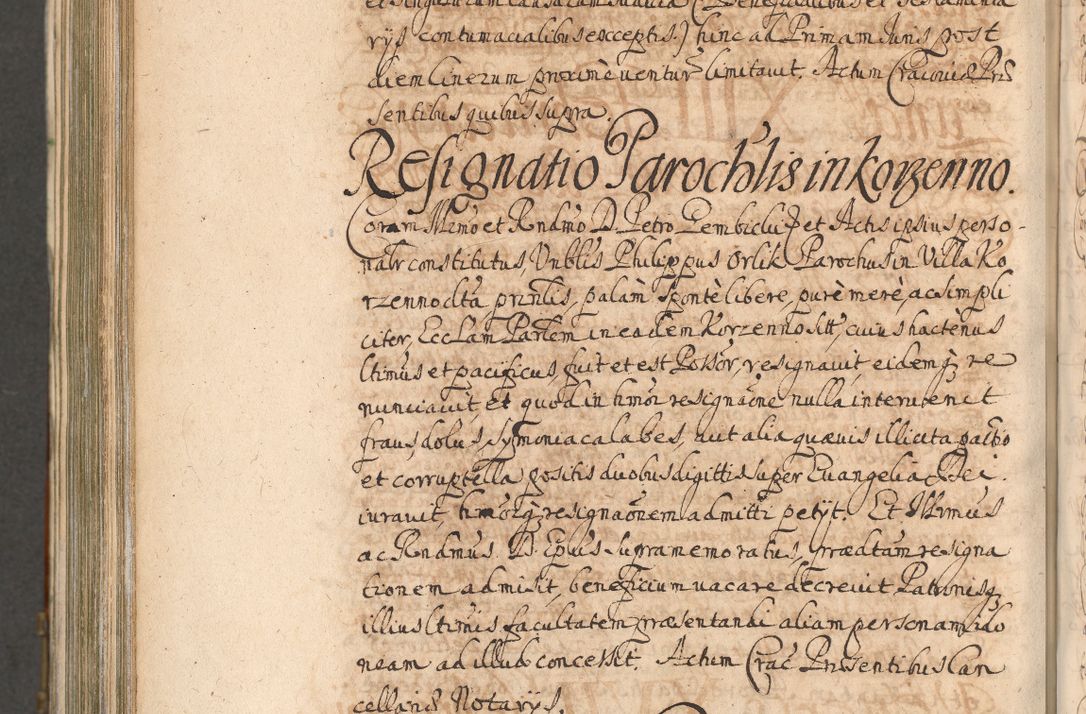 et singulorum causarum suarum (Beneficialibus et Testamenta
rÿs contumacialibus exceptis.) hinc ad Primam Iuris post
diem Cinerum proxime ventur limitavit. Actum Cracoviæ Præ
sentibus quibus supra.
Resignatio Parochlis in Korzenno.
Coram Illrmo et Rndmo D. Petro Gembicki et Actis ipsius perso-
nalr constitutus, Vnblis Philippus Orlik Parochus in Villa Ko
rzenno dta prinlis, palam sponte libere, pure mere, ac simpli
citer, Ecclam Parlem in eadem Korzenno sitt, cuius hactenus
ltimus et pacificus, fuit et est Possor, resignavit, eidemq re
nunciavit et quod in hmoi resignaone nulla intervenit
fraus, dolus, symoniaca labes, aut alia quævis illicita pactio
et corruptella positis duobus digittis super Euangelia Dei
iuravit, hmoiq resignaonem admitti petÿt. Et Illrmus
ac Rndmus D. Epus supramemoratus, prædtam resigna
tionem admisit, beneficium vacare decrevit, Patronisq
illius ltimis facultatem præsentandi aliam personam ido
neam ad illud concessit. Actum Crac Præsentibus Can
cellariæ Notarÿs.